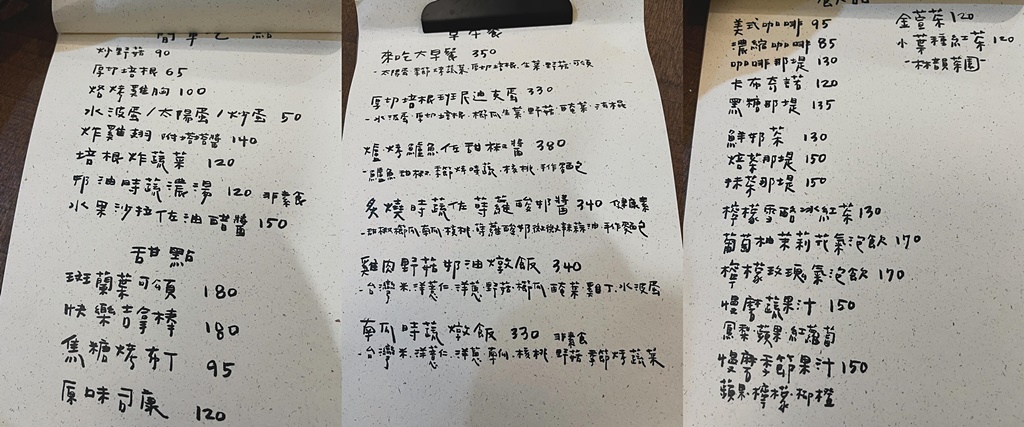 簡單吃 點
炒野菇 90
厚切培根 65
燈烤雞胸 100
水波蛋/太陽蛋/炒蛋 50
炸雞翅 附塔塔醬 140
培根炸蔬菜 120
奶油時蔬濃湯 120 非素食
水果沙拉佐油醋醬 150
甜點
斑蘭葉可頌 180
快樂吉拿棒 180
焦糖烤布丁 95
原味司康 120
早午餐
來吃大早餐 350
-太陽蛋.季節烤蔬菜.厚切培根.生菜.野菇.可頌
厚切培根班尼迪克蛋 330
-水波蛋.厚切培根.櫛瓜.生菜.野菇.醃菜.
爐烤鱸魚佐甜椒醬 380
-鱸魚.甜椒.季節烤時蔬.核桃.手作麵包
炙燒時蔬佐蒔蘿酸奶醬 340
-甜椒.櫛瓜.南瓜.核桃.蒔蘿酸奶.微微辣蒜油.手作麵包
雞肉野菇奶油燉飯 340
-台灣米.洋薏仁.洋蔥.野菇.櫛瓜.醃菜.雞丁.水波蛋
南瓜時蔬燉飯 330 非素食
-台灣米.洋薏仁.洋蔥.南瓜.核桃.野菇.季節烤蔬菜
飲品
美式咖啡 95
濃縮咖啡 85
咖啡那堤 130
卡布奇諾 120
黑糖那堤 135
鮮奶茶 130
焙茶那堤 150
抹茶那堤 150
檸檬雪酪冰紅茶 130
葡萄柚茉莉花氣泡飲 170
檸檬玫瑰氣泡飲 170
慢磨蔬果汁 150
鳳梨.蘋果.紅蘿蔔
慢磨季節果汁 150
蘋果.檸檬.柳橙
金萱茶 120
小葉種紅茶 120
-林韻茶園-